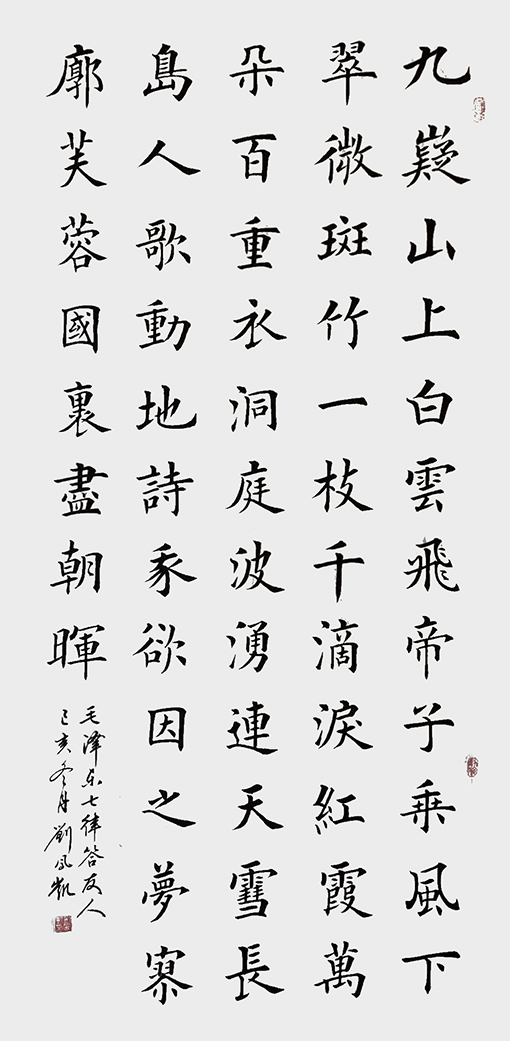 九嶷山上白雲飛帝子乘風下
翠微斑竹一枝千滴淚紅霞萬
朵百重衣洞庭波湧連天雪長
島人歌動地詩豕欲因之夢寥
廓芙蓉國裏盡朝暉
毛澤东七律答友人
己亥冬月劉凤凱